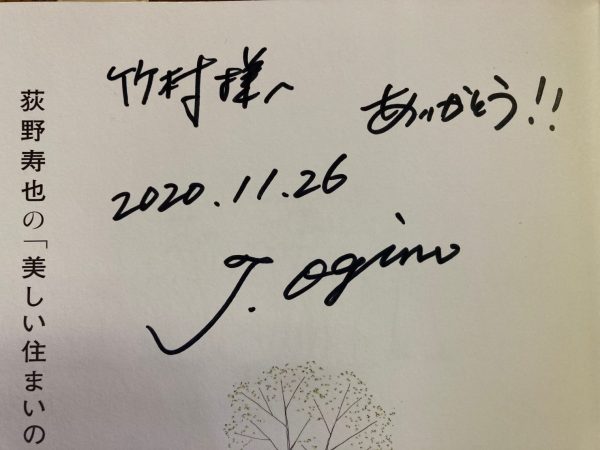 竹村様へ
ありがとう!!
2020.11.26
T. ogino
荻野寿也の「美しい住まいの